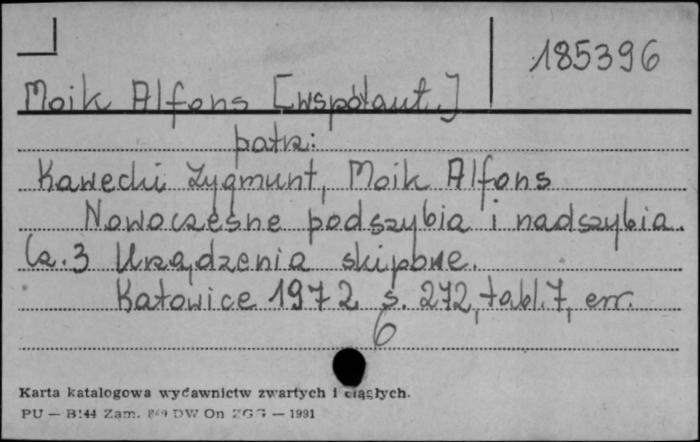 185396
Moik Alfons [współaut.]
patrz:
Kawecki Zygmunt, Moik Alfons
Nowoczesne podszybia i nadszybia.
Cz. 3 Urządzenia skipowe.
Katowice 1972 s. 272, tabl. 7, err.
6
Karta katalogowa wydawnictw zwartych i ciągłych.
PU — B144 Zam. DW On ZGG — 1991